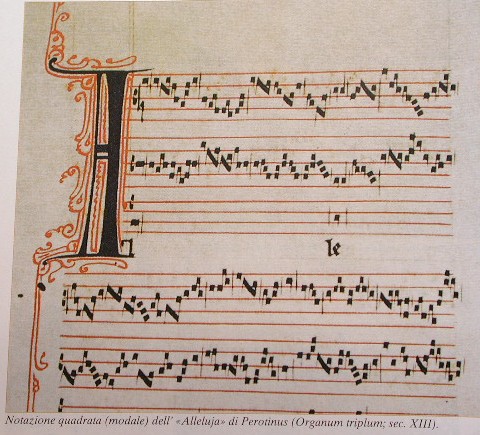 A
l le
Notazione quadrata (modale) dell' «Alleluja» di Perotinus (Organum triplum; sec. XIII).